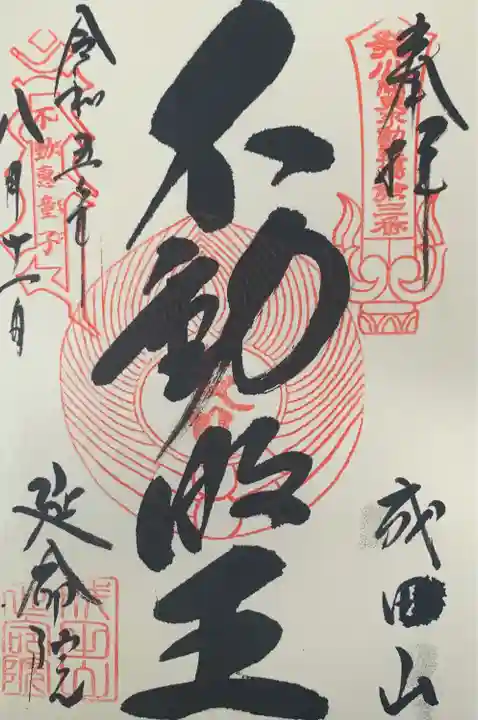 奉拝
成田山
不動明王
令和五年
八月十一日
延命院
不動恵童子